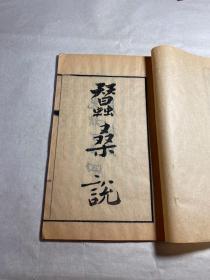 蠶桑說